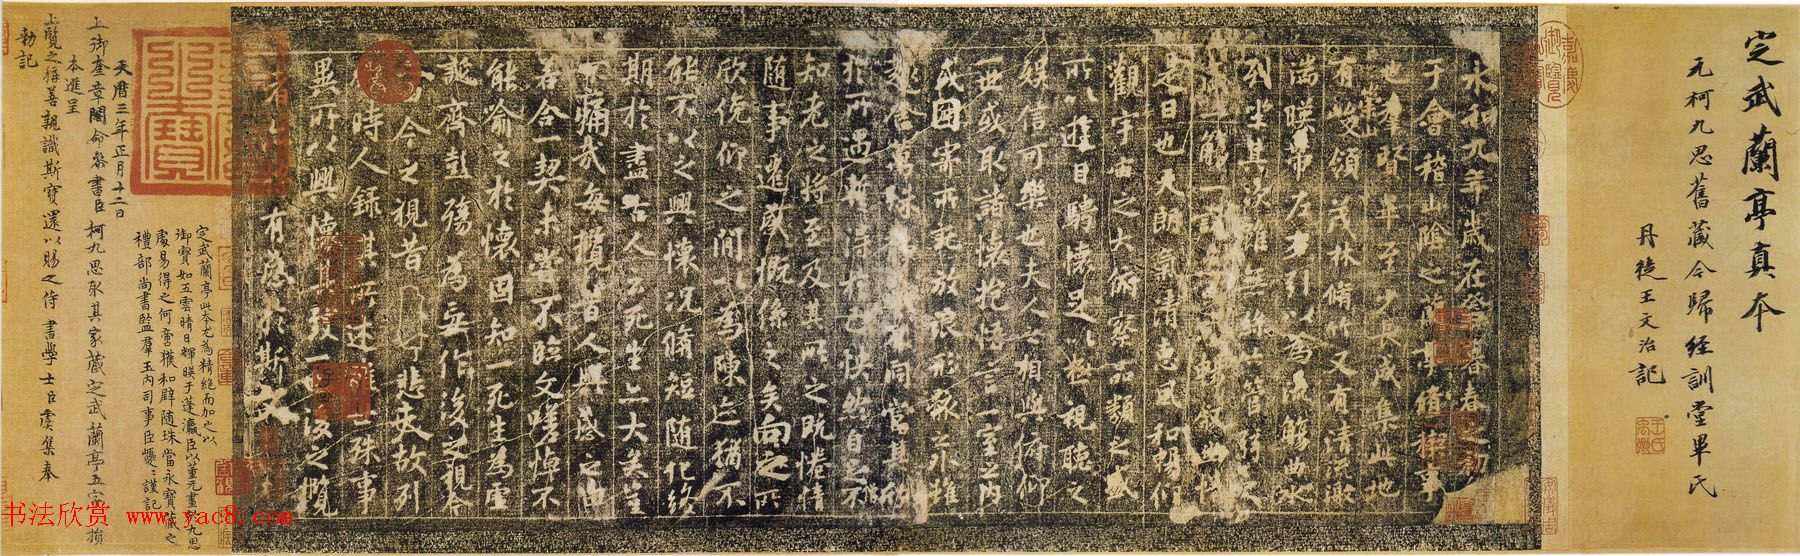 定武蘭亭真本
元柯九思舊藏今歸經訓堂畢氏
丹徒王文治記
永和九年歲在癸丑暮春之初
于會稽山陰之蘭亭脩禊事
也羣賢畢至少長咸集此地
有峻領茂林脩竹又有清流激
湍暎帶左右引以為流觴曲水
列坐其次雖無絲竹管弦之
盛一觴一詠亦足以暢叙幽情
是日也天朗氣清惠風和暢仰
觀宇宙之大俯察品類之盛
所以遊目騁懷足以極視聽之
娛信可樂也夫人之相與俯仰
一世或取諸懷抱悟言一室之內
或因寄所託放浪形骸之外雖
趣舍萬殊靜躁不同當其欣
於所遇暫得於己快然自足不
知老之將至及其所之既惓情
隨事遷感慨係之矣向之所
欣俛仰之間以為陳迹猶不
能不以之興懷況脩短隨化終
期於盡古人云死生亦大矣豈
不痛哉每攬昔人興感之由
若合一契未嘗不臨文嗟悼不
能喻之於懷固知一死生為虛
誕齊彭殤為妄作後之視今
亦由今之視昔悲夫故列
叙時人錄其所述雖世殊事
異所以興懷其致一也後之攬
者亦將有感於斯文
定武蘭亭此本尤為精絕而加之以
御寶如五雲晴日輝暎于蓬瀛臣以董元畫與九思
處易得之何啻獲和璧隨珠當永寶藏之
禮部尚書監羣玉內司事臣巙巙謹記
天曆三年正月十二日
上御奎章閣命參書臣柯九思取其家藏之武蘭亭五字損
本進呈
上覽之稱善親識斯寶還以賜之侍書學士臣虞集奉
勅記
书法欣赏 www.yac8.com